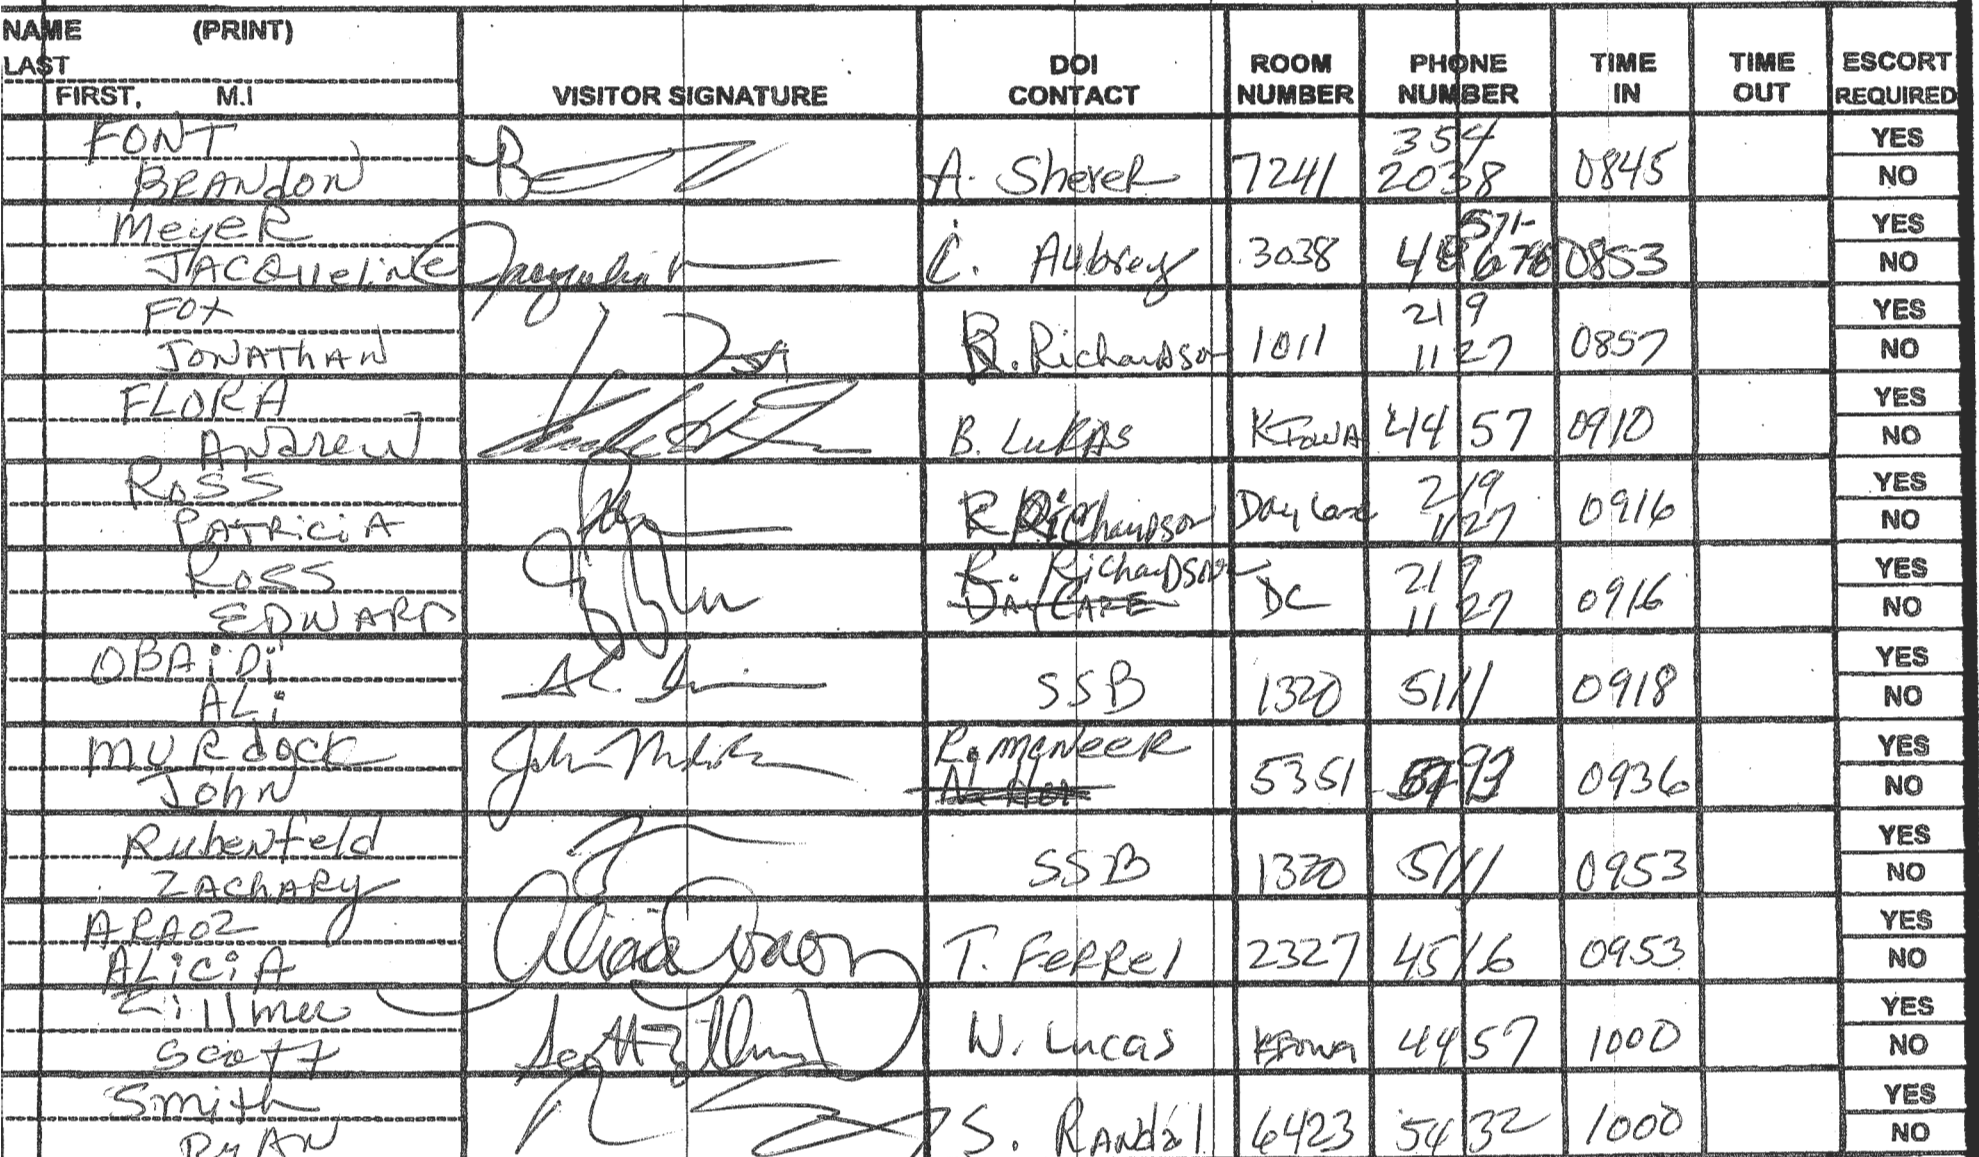 NAME (PRINT)
LAST
FIRST, M.I
VISITOR SIGNATURE
DOI CONTACT
ROOM NUMBER
PHONE NUMBER
TIME IN
TIME OUT
ESCORT REQUIRED
FONT
BRANDON
A. SHERER 7241 354 2038 0845 YES NO
MEYER
JACQUELINE
C. Aubrey 3038 571- 0853 YES NO
FOX
JONATHAN
R. Richardson 1011 219 1127 0857 YES NO
FLORA
ANDREW
B. LUKAS KIOWA 4457 0910 YES NO
ROSS
PATRICIA
R Richardson Day Care 219 1127 0916 YES NO
ROSS
EDWARD
R. Richardson
DAY CARE
DC 219 1127 0916 YES NO
OBAiDi
ALi
SSB 1320 5111 0918 YES NO
MURdock
John
R. McNeer 5351 0936 YES NO
Rubenfeld
ZACHARY
SSB 1320 5111 0953 YES NO
ARAOZ
ALiCiA
Alicia Araoz
T. FERREl 2327 4516 0953 YES NO
Zillmer
Scott
Scott Zillmer
W. Lucas KIOWA 4457 1000 YES NO
Smith
RYAN
S. RANdal 6423 5432 1000 YES NO